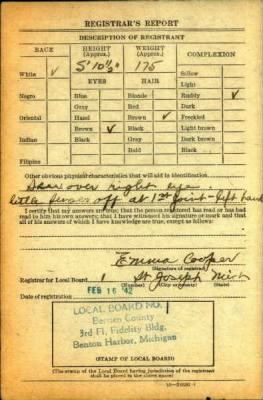 REGISTRAR'S REPORT
DESCRIPTION OF REGISTRANT
RACE HEIGHT (Approx.) WEIGHT (Approx.) COMPLEXION
White ✓ 5' 10 1/2" 175 Sallow
EYES HAIR Light
Negro Blue Blonde Ruddy ✓
Gray Red Dark
Oriental Hazel Brown ✓ Freckled
Brown ✓ Black Light brown
Indian Black Gray Dark brown
Bald Black
Filipino
Other obvious physical characteristics that will aid in identification
Scar over right eye
little finger off at 1st joint - left hand
I certify that my answers are true; that the person registered has read or has had
read to him his own answers; that I have witnessed his signature or mark and that
all of his answers of which I have knowledge are true, except as follows:
Emma Cooper
(Signature of registrar)
Registrar for Local Board 1 St Joseph Mich
(Number) (City or county) (State)
Date of registration FEB 16 '42
LOCAL BOARD NO.
Berrien County
3rd Fl. Fidelity Bldg.
Benton Harbor, Michigan
(STAMP OF LOCAL BOARD)
(The stamp of the Local Board having jurisdiction of the registrant
shall be placed in the above space)